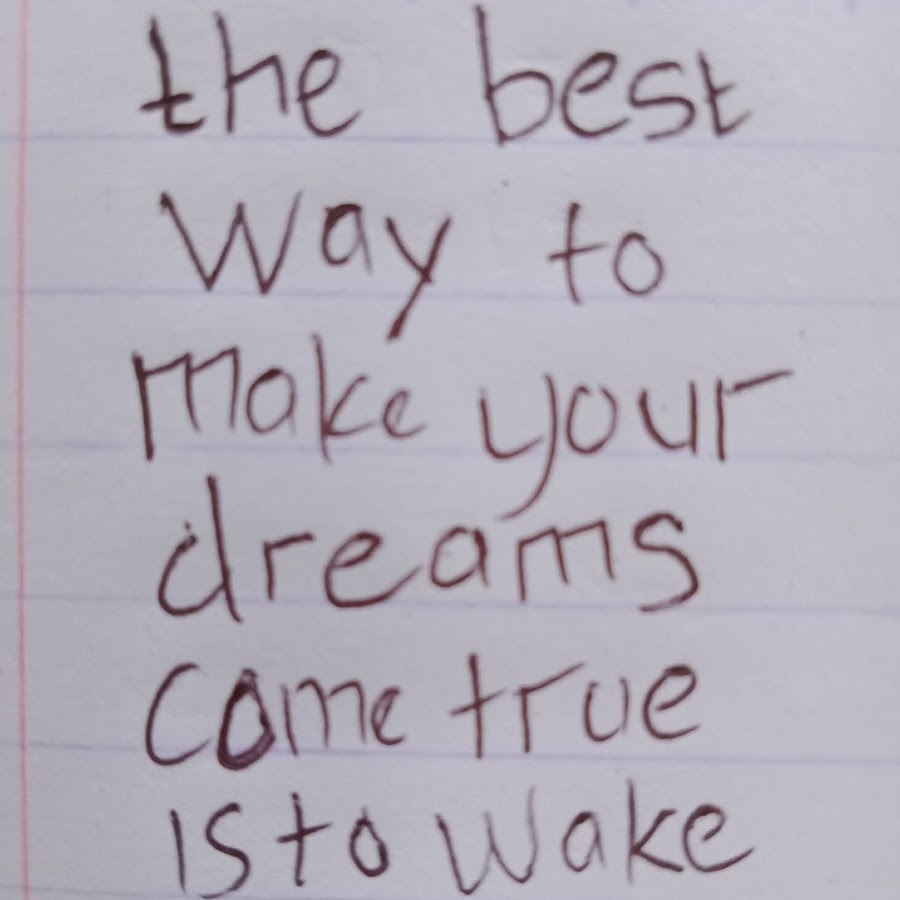 the best
way to
make your
dreams
come true
is to wake